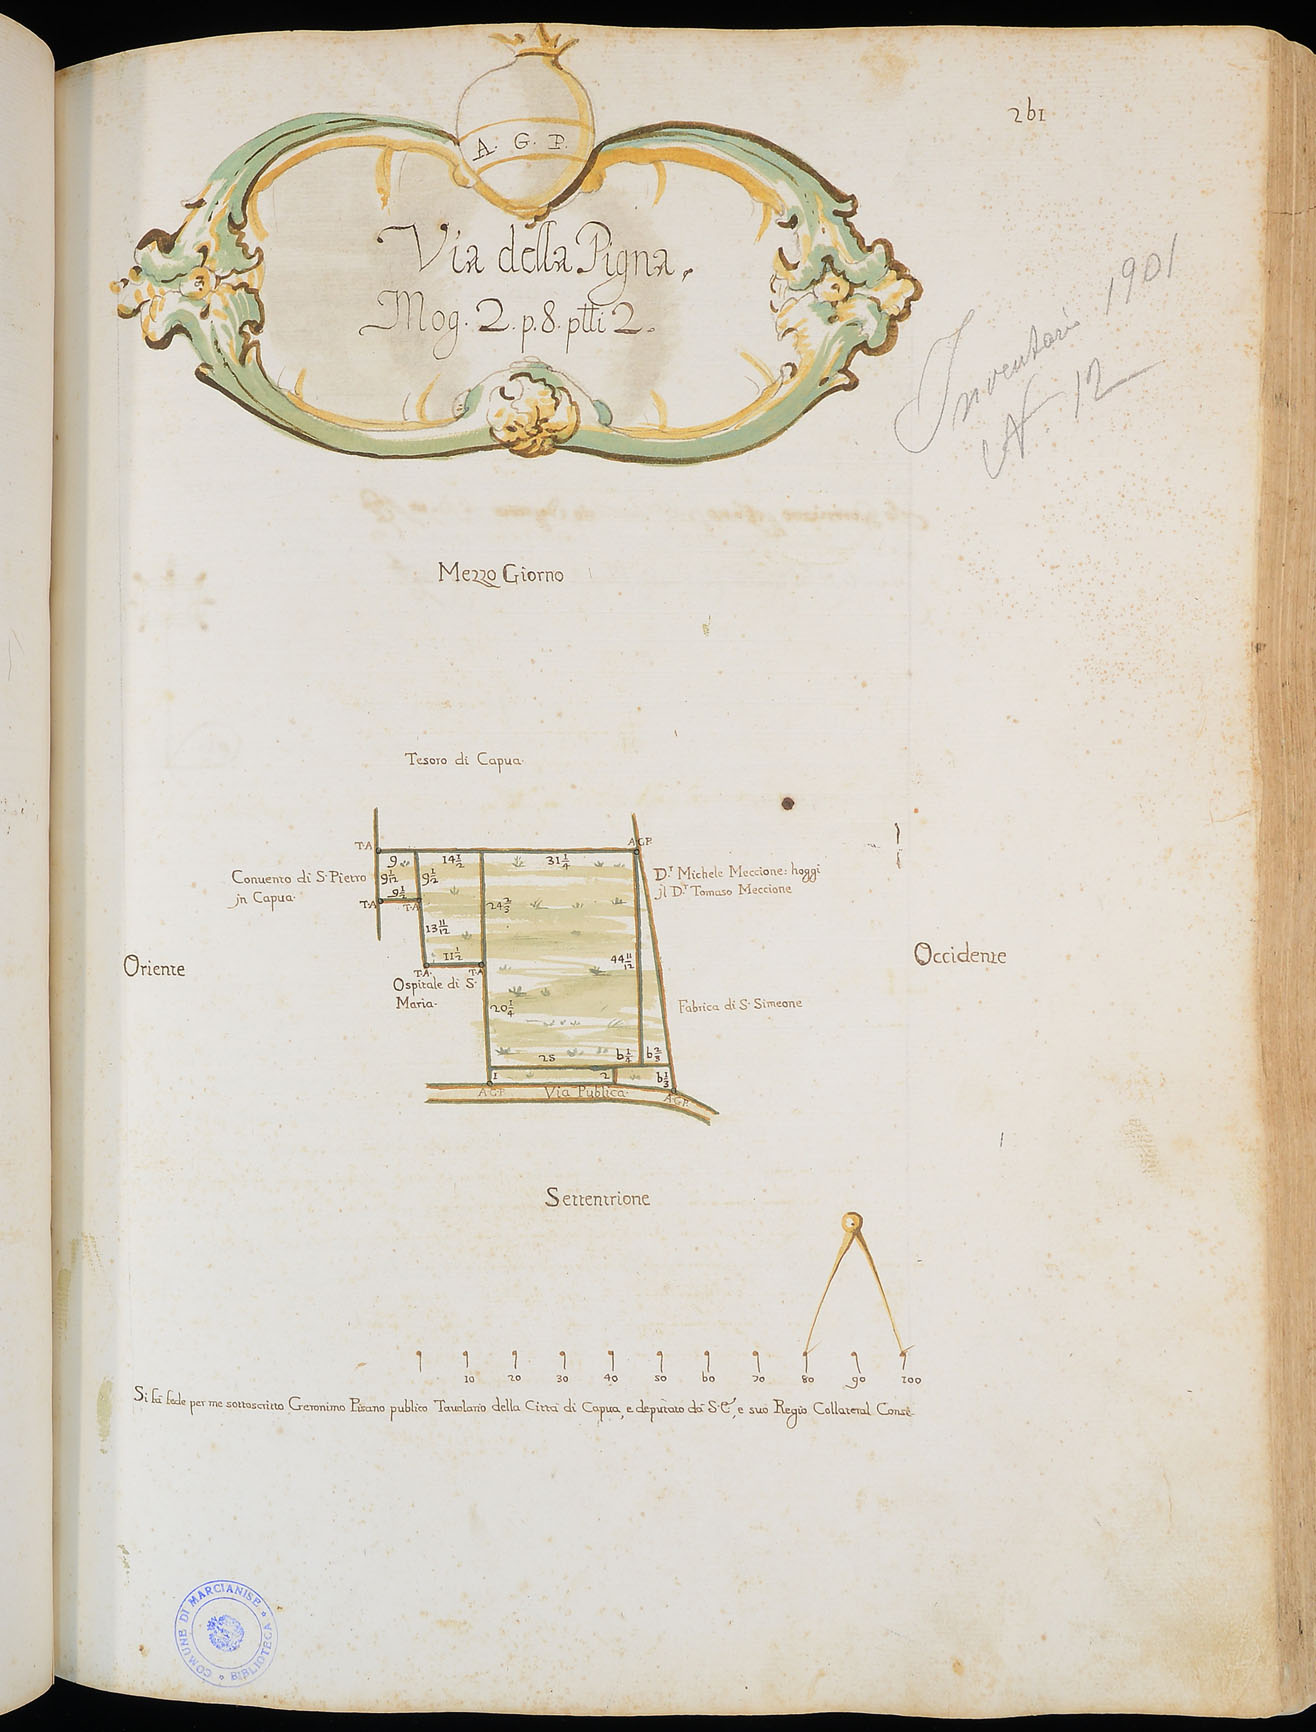 261
A. G. P.
Via della Pigna,
Mog. 2. p. 8. ptti 2.
Inventari 1901
N 12
Mezzo Giorno
Tesoro di Capua.
T.A
A G P
9
14 1/2
31 1/4
Conuento di S. Pietro
jn Capua.
9 1/12
9 1/2
9 1/2
T.A
T.A
24 2/3
D.r Michele Meccione: hoggi
jl D.r Tomaso Meccione
13 11/12
11 1/2
44 11/12
T.A.
T.A
Oriente
Occidente
Ospitale di S.
Maria.
20 1/4
Fabrica di S. Simeone
25
6 1/4
6 2/3
1
2
6 1/3
A G P
Via Publica.
A G P.
Settentrione
10 20 30 40 50 60 70 80 90 100
Si fà fede per me sottoscritto Geronimo Pisano publico Tauolario della Città di Capua, e deputato da S. E., e suo Regio Collateral Conse-
COMUNE DI MARCIANISE
BIBLIOTECA